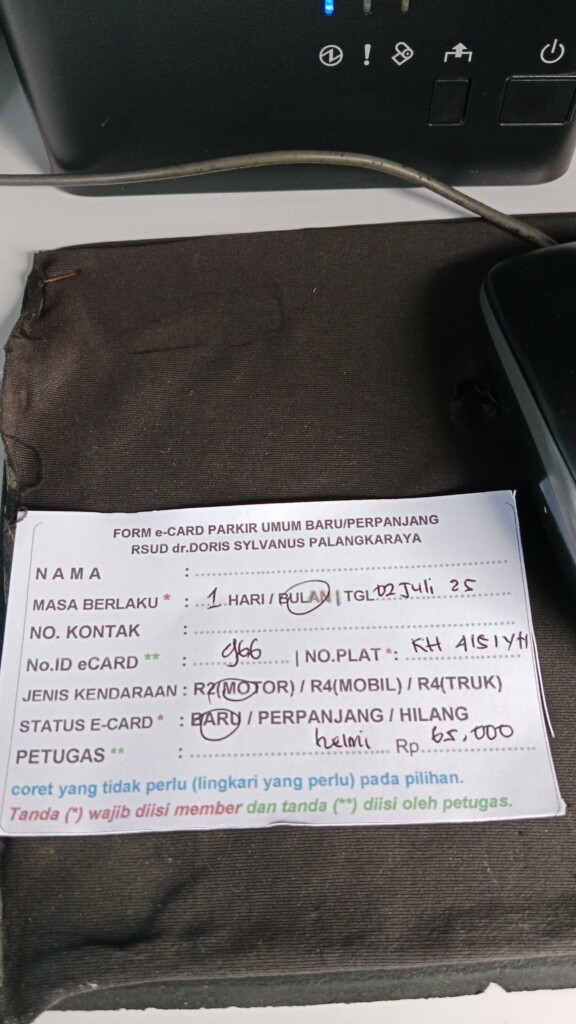 FORM e-CARD PARKIR UMUM BARU/PERPANJANG
RSUD dr.DORIS SYLVANUS PALANGKARAYA
NAMA :
MASA BERLAKU * : 1 HARI / BULAN | TGL 02 Juli 25
NO. KONTAK :
No.ID eCARD ** : 966 | NO.PLAT *: KH 4151 YH
JENIS KENDARAAN : R2(MOTOR) / R4(MOBIL) / R4(TRUK)
STATUS E-CARD * : BARU / PERPANJANG / HILANG
PETUGAS ** : helmi Rp 65.000
coret yang tidak perlu (lingkari yang perlu) pada pilihan.
Tanda (*) wajib diisi member dan tanda (**) diisi oleh petugas.